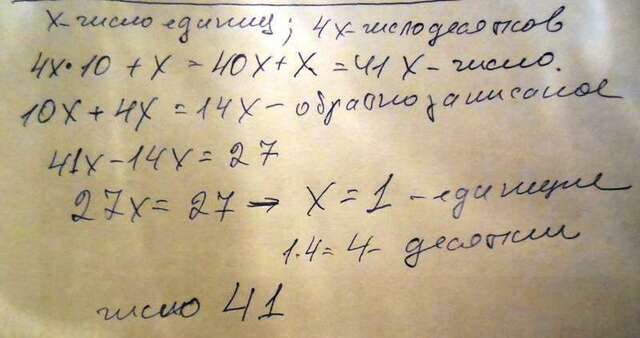 х-число единиц; 4х-число десятков
4х•10 + х = 40х + х = 41х - число.
10х + 4х = 14х - обратно записаное
41х - 14х = 27
27х = 27 → х = 1 - единицы
1•4 = 4 - десятки
число 41